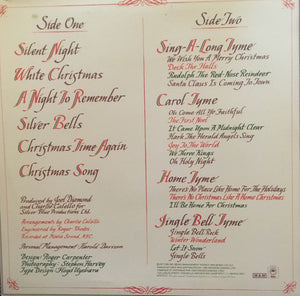 Side One
Silent Night
White Christmas
A Night To Remember
Silver Bells
Christmas Time Again
Christmas Song
Produced by Joel Diamond
and Charlie Calello for
Silver Blue Productions Ltd.
Arrangements by Charlie Calello
Engineered by Roger
Recorded at Media Sound, NYC
Personal Management: Harold Davison
Design: Roger Carpenter
Photography: Stephen Harvey
Type Design: Lloyd
Side Two
Sing-A-Long Tyme
We Wish You A Merry Christmas
Deck The Halls
Rudolph The Red-Nose Reindeer
Santa Claus Is Coming To Town
Carol Tyme
Oh Come All Ye Faithful
The First Noel
It Came Upon A Midnight Clear
Hark The Herald Angels Sing
Joy To The World
We Three Kings
Oh Holy Night
Home Tyme
There's No Place Like Home For The Holidays
There's No Christmas Like A Home Christmas
I'll Be Home For Christmas
Jingle Bell Tyme
Jingle Bell Rock
Winter Wonderland
Let It Snow
Jingle Bells